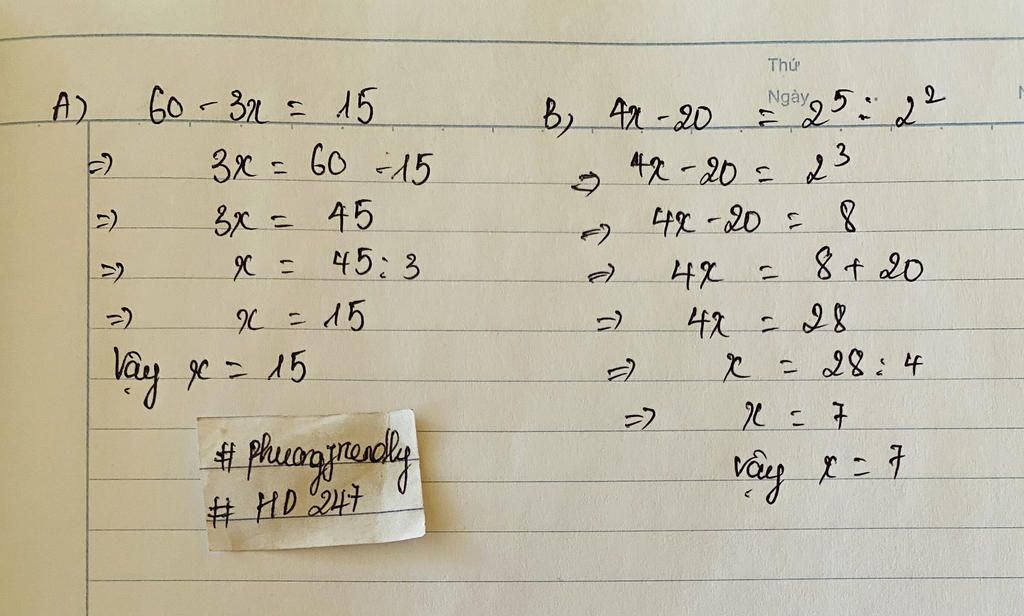 Thứ
Ngày
A) 60 - 3x = 15
=> 3x = 60 - 15
=> 3x = 45
=> x = 45 : 3
=> x = 15
Vậy x = 15
# phuongfriendly
# HD 247
B, 4x - 20 = 2⁵ : 2²
=> 4x - 20 = 2³
=> 4x - 20 = 8
=> 4x = 8 + 20
=> 4x = 28
=> x = 28 : 4
=> x = 7
vậy x = 7